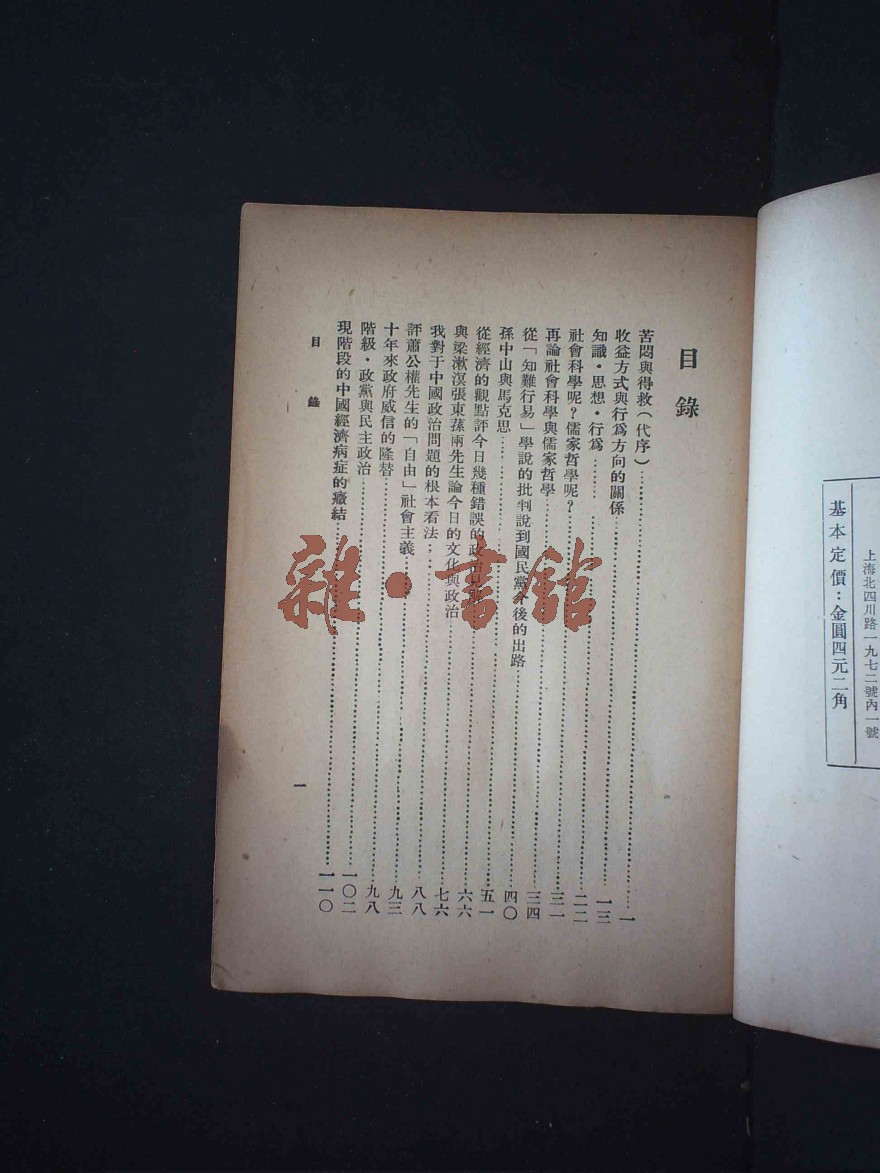 上海北四川路一九七二號內一號
基本定價：金圓四元二角
目錄
苦悶與得救（代序）……一
收益方式與行爲方向的關係……一三
知識・思想・行爲……二二
社會科學呢？儒家哲學呢？……三一
再論社會科學與儒家哲學……三四
從「知難行易」學說的批判說到國民黨今後的出路……四〇
孫中山與馬克思……五一
從經濟的觀點評今日幾種錯誤的政治……六六
與梁漱溟張東蓀兩先生論今日的文化與政治……七六
我對于中國政治問題的根本看法……八八
評蕭公權先生的「自由」社會主義……九三
十年來政府威信的隆替……九八
階級・政黨與民主政治……一〇二
現階段的中國經濟病症的癥結……一一〇
目錄
一
雜・書館